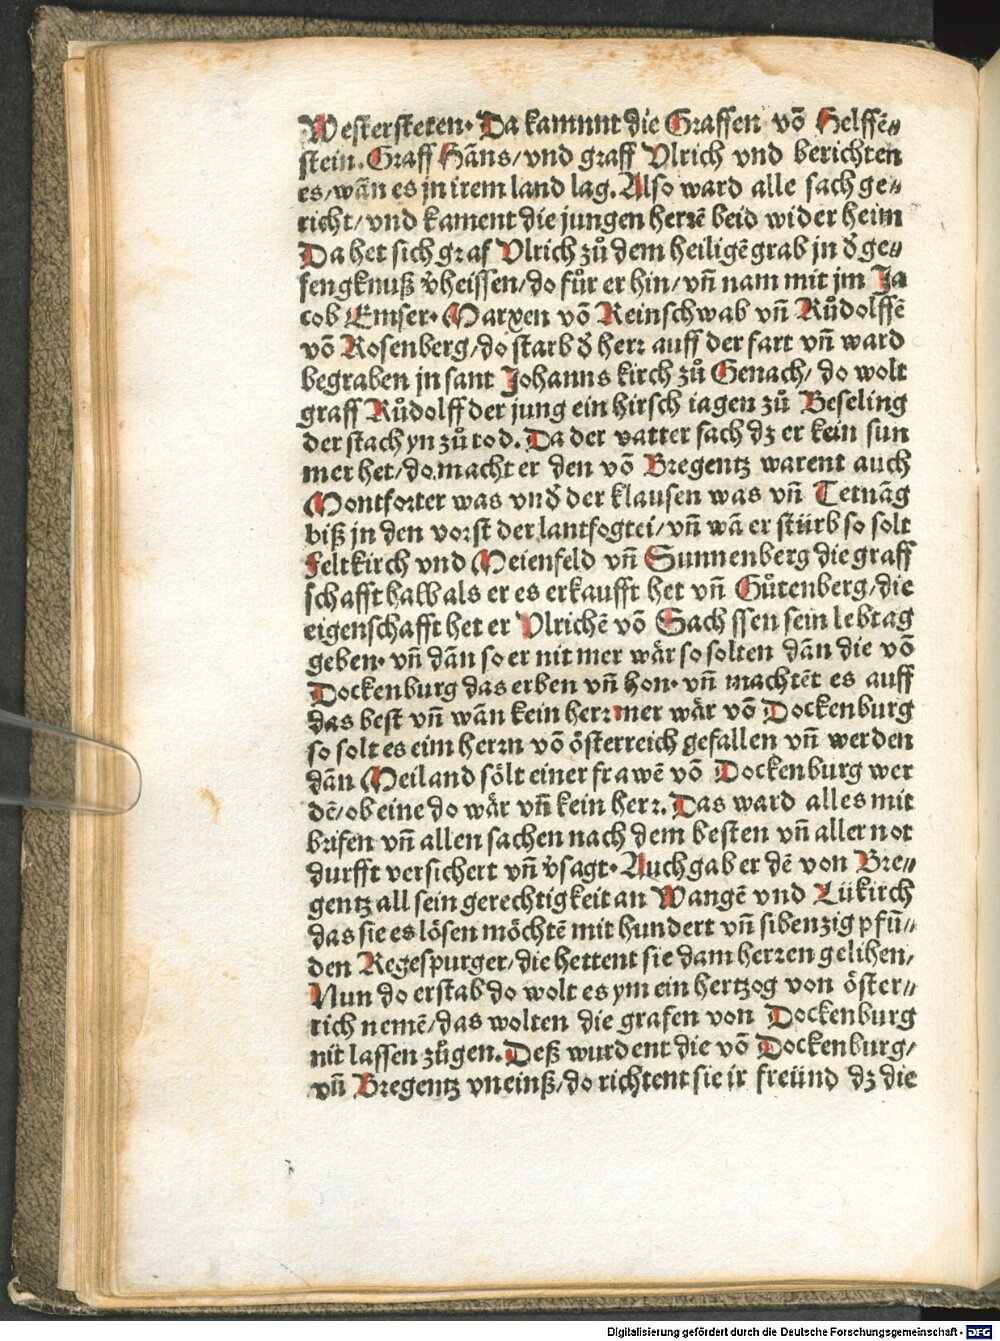 Westersteten. Da kamnnt die Graffen võ Helffẽ⸗
stein. Graff Hãns/vnd graff Vlrich vnd berichten
es/wãn es jn irem land lag. Also ward alle sach ge⸗
richt/vnd kament die jungen herrẽ beid wider heim
Da het sich graf Vlrich zů dem heiligẽ grab jn d̕ ge⸗
fengknuß v̕heissen/do fůr er hin/vñ nam mit jm Ja
cob Emser. Marxen võ Reinschwab vñ Růdolffẽ
võ Rosenberg/do starb d̕ herr auff der fart vñ ward
begraben jn sant Johanns kirch zů Genach/do wolt
graff Růdolff der jung ein hirsch iagen zů Beseling
der stach yn zů tod. Da der vatter sach dz er kein sun
mer het/do macht er den võ Bregentz warent auch
Montforter was vnd̕ der klausen was vñ Tetnãg
biß jn den vorst der lantfogtei/vñ wã er stürb so solt
Feltkirch vnd Meienfeld vñ Sunnenberg die graff
schafft halb als er es erkaufft het vñ Gůtenberg/die
eigenschafft het er Vlrichẽ võ Sach ssen sein lebtag
geben. vñ dãn so er nit mer wär so solten dãn die võ
Dockenburg das erben vñ hon. vñ machtẽt es auff
das best vñ wãn kein herr mer wär võ Dockenburg
so solt es eim herrn võ österreich gefallen vñ werden
dãn Meiland sölt einer frawẽ võ Dockenburg wer
dẽ/ob eine do wär vñ kein herr. Das ward alles mit
brifen vñ allen sachen nach dem besten vñ aller not
durfft versichert vñ v̕sagt. Auch gab er dẽ von Bre⸗
gentz all sein gerechtigkeit an Wangẽ vnd Lükirch
das sie es lösen möchtẽ mit hundert vñ sibenzig pfũ⸗
den Regespurger/die hettent sie dam herren gelihen/
Nun do er stab do wolt es ym ein hertzog von öster⸗
rich nemẽ/das wolten die grafen von Dockenburg
nit lassen zůgen. Deß wurdent die võ Dockenburg/
vñ Bregentz vneinß/do richtent sie ir freünd dz die
Digitalisierung gefördert durch die Deutsche Forschungsgemeinschaft - DFG